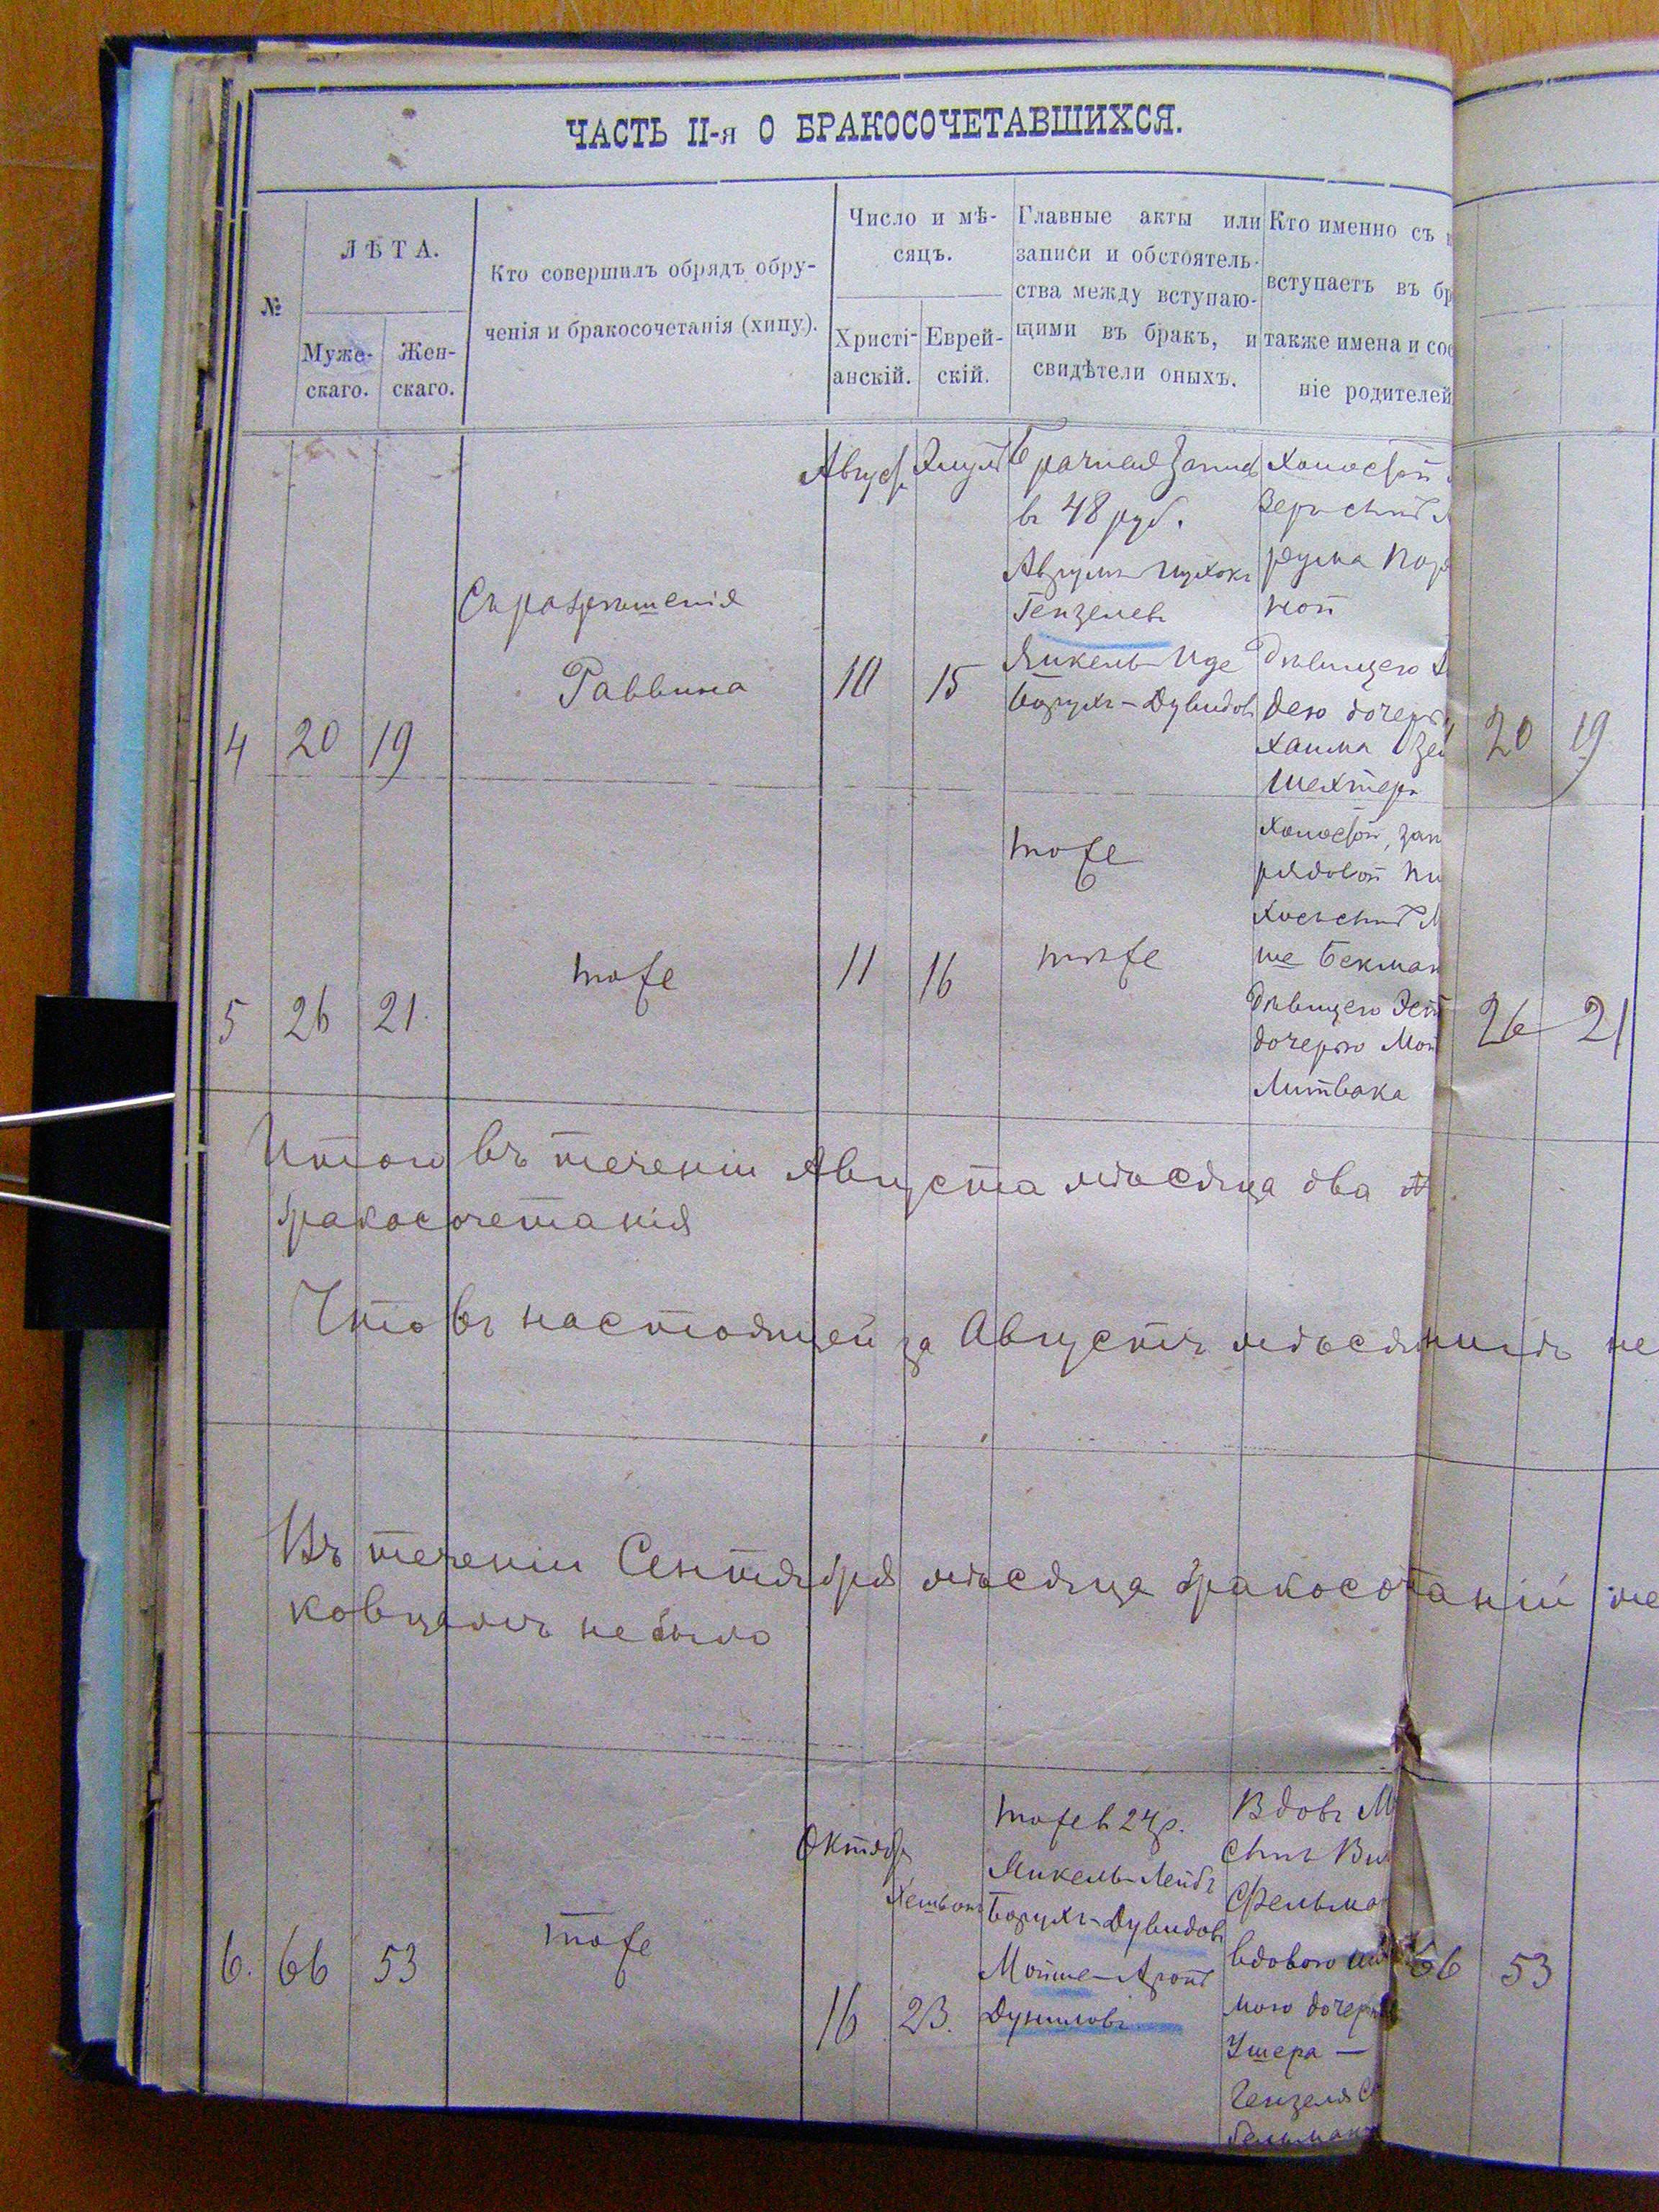 ЧАСТЬ II-я О БРАКОСОЧЕТАВШИХСЯ.
№
ЛѢТА.
Муже-
скаго.
Жен-
скаго.
Кто совершилъ обрядъ обру-
ченія и бракосочетанія (хипу).
Число и мѣ-
сяцъ.
Христі-
анскій.
Еврей-
скій.
Главные акты или
записи и обстоятель-
ства между вступаю-
щими въ бракъ, и
свидѣтели оныхъ.
Кто именно съ
вступаетъ въ бр
также имена и сос
ніе родителей
4
20
19
Съ разрѣшенія
Раввина
Август
10
15
въ 48 руб.
Гензелевъ
Янкель
Борухъ-Дувидовъ
Холостой
рума
ной
дѣвицею
дею дочерью
Хаима
Шехтера
20
19
5
26
21.
тоже
11
16
тоже
тоже
Холостой, зап
рядовой
ше Бекман
дѣвицею
дочерью
Литвака
26
21
Итого въ теченіи Августа мѣсяца два
бракосочетанія
Что въ настоящей за Августъ мѣсяц не
Въ теченіи Сентября мѣсяца бракосочтаній
не было
6.
66
53
тоже
Октяб
16
23.
тоже в 24 р.
Янкель-Лейбъ
Борухъ-Дувидовъ
Мойше-Арон
Дуниловъ
Вдовъ М
сынъ
Фельма
вдовою
мою дочерью
Ушера —
Гензеля
бельман
66
53